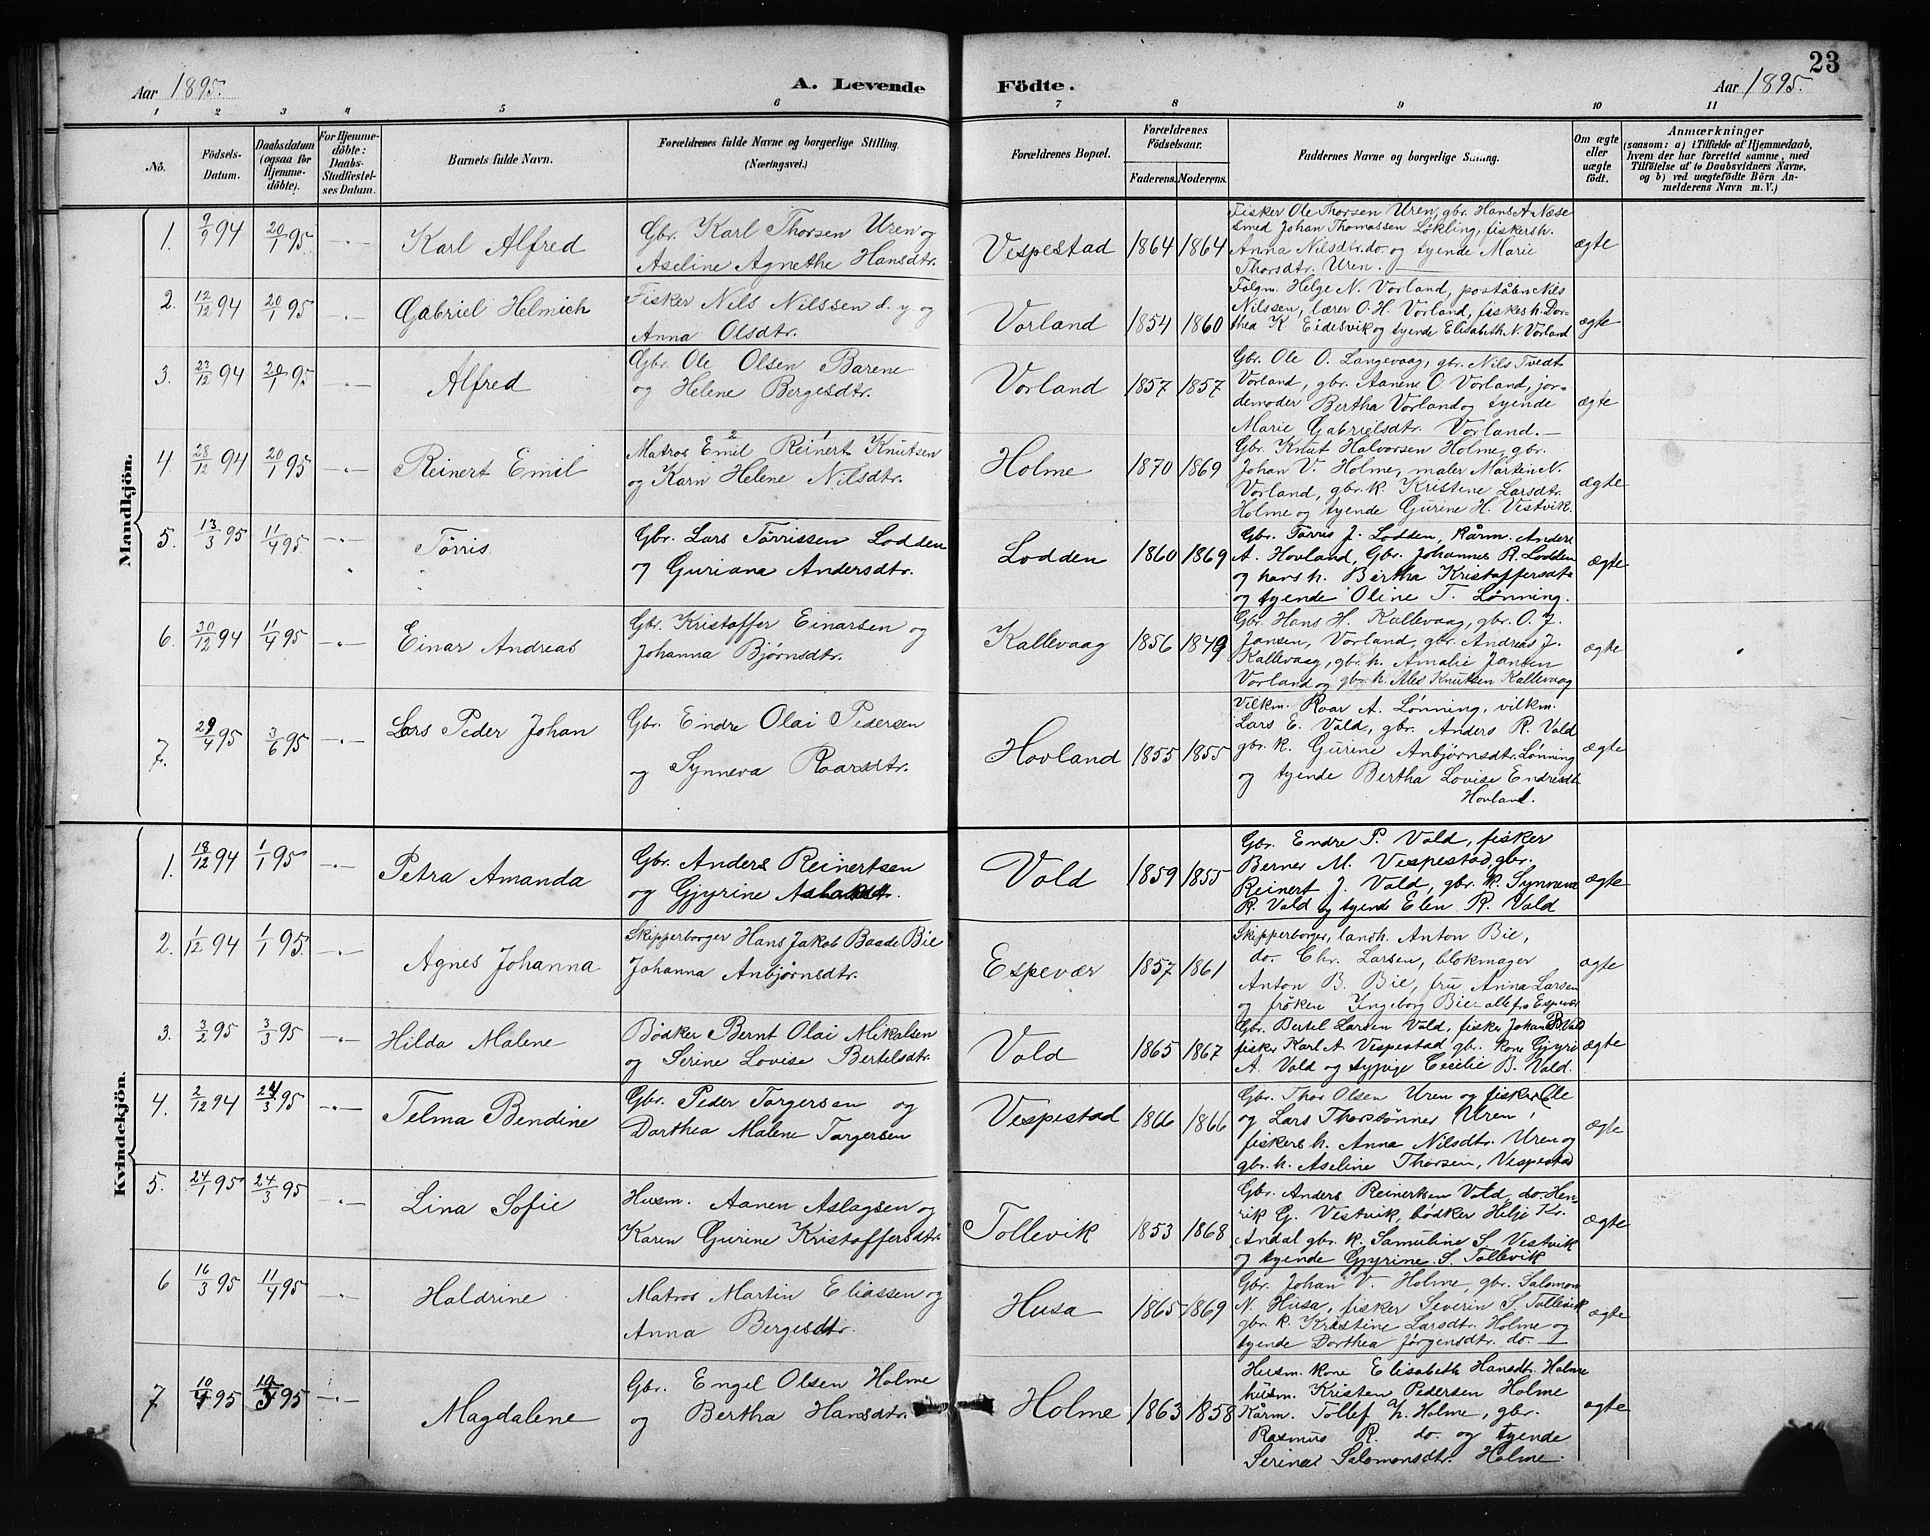 23
Aar 1895.
A. Levende
Födte.
Aar 1895.
1 2 3 4 5 6 7 8 9 10 11
No.
Födsels-Datum.
Daabsdatum (ogsaa for Hjemmedöbte).
For Hjemmedöbte: Daabs-Stadfæstelses Datum.
Barnets fulde Navn.
Forældrenes fulde Navne og borgerlige Stilling. (Næringsvei.)
Forældrenes Bopæl.
Forældrenes Födselsaar.
Faderens. Moderens.
Faddernes Navne og borgerlige Stilling.
Om ægte eller uægte födt.
Anmærkninger
(saasom: a) i Tilfælde af Hjemmedaab,
hvem der har forrettet samme, med
Tilföielse af to Daabsvidners Navne,
og b) ved uægtefödte Börn An-
melderens Navn m. V.)
Mandkjön.
1. 9/9 94 20/1 95 -"- Karl Alfred
Gbr. Karl Thorsen Uren og
Aseline Agnethe Hansdtr.
Vespestad 1864 1864
Fisker Ole Thorsen Uren, gbr. Hans A. Næse
smed Johan Thomassen Løkling, fiskersh.
Anna Nilsdtr. do. og tyende Marie
Thorsdtr. Uren.
ægte
2. 12/12 94 20/1 95 -"- Gabriel Helmich
Fisker Nils Nilssen d. y. og
Anna Olsdtr.
Vorland 1854 1860
Følgm. Helge N. Vorland, poståbn Nils
Nilssen, lærer O. H. Vorland, fiskersh. Dor-
thea K. Eidesvik og tyende Elisabeth N. Vorland
ægte
3. 23/12 94 20/1 95 -"- Alfred
Gbr. Ole Olsen Barene
og Helene Bergesdtr.
Vorland 1857 1857
Gbr. Ole O. Langevaag, gbr. Nils Tvedt
Vorland, gbr. Aanen O. Vorland, jor-
demoder Bertha Vorland og tyende
Marie Gabrielsdtr. Vorland.
ægte
4. 28/12 94 20/1 95 -"- Reinert Emil
Matros Emil Reinert Knutsen
og Karn Helene Nilsdtr.
Holme 1870 1869
Gbr. Knut Halvorsen Holme, gbr.
Johan V. Holme, maler Martin N.
Vorland, gbr. k. Kristine Larsdtr.
Holme og tyende Gurine H. Vestvik.
ægte
5. 13/3 95 11/4 95 -"- Tørris
Gbr. Lars Tørrissen Lodden
og Guriana Andersdtr.
Lodden 1860 1869
Gbr. Tørris J. Lodden, kårm. Anders
A. Hovland, Gbr. Johannes R. Lodden
og hans h. Bertha Kristoffersdtr
og tyende Oline T. Lønning.
ægte
6. 30/12 94 11/4 95 -"- Einar Andreas
Gbr. Kristoffer Einarsen og
Johanna Bjørnsdtr.
Kallevaag 1856 1849
Gbr. Hans H. Kallevaag, gbr. O. J.
Jansen, Vorland, gbr. Andreas J.
Kallevaag, gbr. h. Amalie Jansen
Vorland og gbr. h. Ales Knutsen Kallevaag
ægte
7. 29/4 95 3/6 95 -"- Lars Peder Johan
Gbr. Endre Olai Pedersen
og Synneva Roarsdtr.
Hovland 1855 1855
Vilkm. Roar A. Lønning, vilkm.
Lars E. Vold, gbr. Anders R. Vold
gbr. k. Gurine Anbjørnsdtr. Lønning
og tyende Bertha Lovise Endresdtr
Hovland.
ægte
Kvindekjön.
1. 18/12 94 1/1 95 -"- Petra Amanda
Gbr. Anders Reinertsen
og Gjyrine
Vold 1859 1855
Gbr. Endre P. Vold, fisker
Berner M. Vespestad, gbr.
Reinert J. Vold, gbr. k. Synneva
R. Vold og tyende Elen R. Vold
ægte
2. 1/12 94 1/1 95. -"- Agnes Johanna
Skipperborger Hans Jakob Baade Bie
Johanna Anbjørnsdtr.
Espevær 1857 1861
Skipperborger, landh. Anton Bie,
do. Chr. Larsen, blokmager
Anton B. Bie, fru Anna Larsen
og frøken Ingeborg Bie - alle fra Espevær
ægte
3. 3/2 95 3/3 95 -"- Hilda Malene
Bødker Bernt Olai Mikalsen
og Serine Lovise Bertelsdtr.
Vold 1865 1867
Gbr. Bertel Larsen Vold, fisker Johan B. Vold
fisker Karl A. Vespestad gbr. kone Gjyri
A. Vold og typige Cecilie B. Vold.
ægte
4. 2/12 94 24/3 95 -"- Telma Bendine
Gbr. Peder Torgersen og
Dorthea Malene Torgersen
Vespestad 1866 1866
Gbr. Thor Olsen Uren og fisker Ole
og Lars Thorsønner Uren,
fiskers h. Anna Nilsdtr. Uren og
gbr. h. Aseline Thorsen, Vespestad
ægte
5. 24/1 95 24/3 95 -"- Lina Sofie
Husm. Aanen Aslagsen og
Karen Gurine Kristoffersdtr.
Tollevik 1853 1868
Gbr. Anders Reinertsen Vold, do. Hen-
rik G. Vestvik, bødker Helje Kr.
Andal gbr. k. Samuline S. Vestvik
og tyende Gjyrine S. Tollevik
ægte
6 16/3 95 11/4 95 -"- Haldrine
Matros Martin Eliassen og
Anna Bergesdtr.
Husa 1865 1869
Gbr. Johan V. Holme, gbr. Salomon
N. Husa, fisker Severin S. Tollevik
gbr. k. Kristine Larsdtr. Holme og
tyende Dorthea Jørgensdtr. do.
ægte
7 10/4 95 95 -"- Magdalene
Gbr. Engel Olsen Holme
og Bertha Hansdtr.
Holme 1863 1858
Husm. kone Elisabeth Hansdtr. Holme
husm. Kristen Pedersen Holme
Kårm. Tollef Holme, gbr.
Rasmus R. do. og tyende
Serina Salomonsdtr. Holme.
ægte